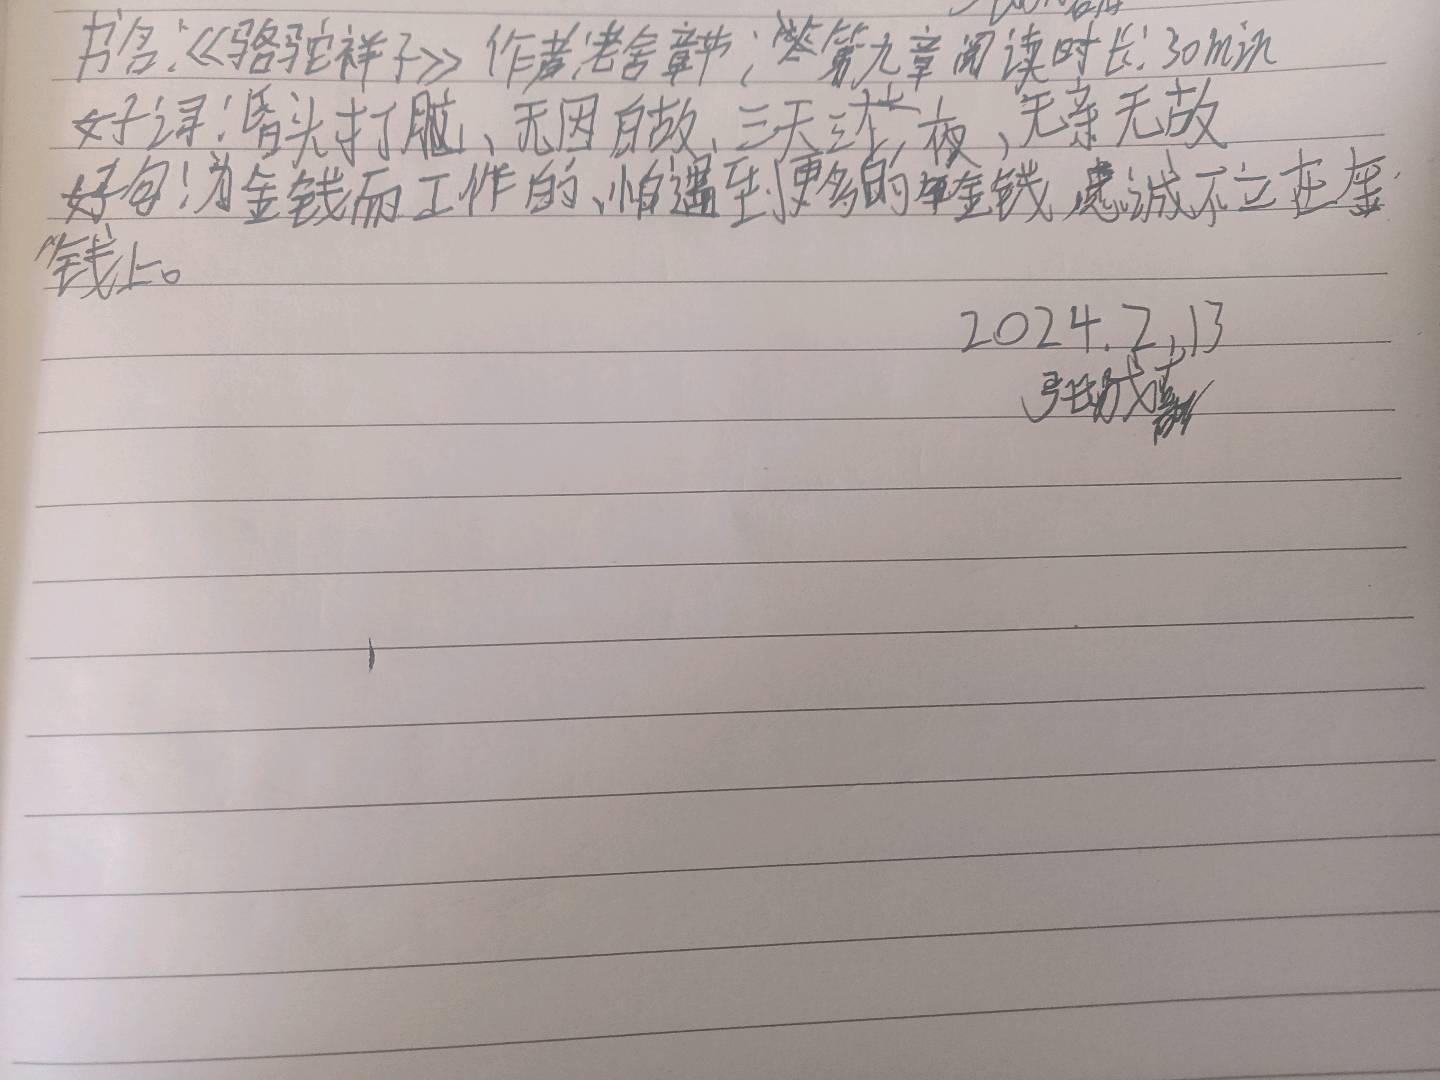 书名:《骆驼祥子》 作者老舍章节;第九章 阅读时长:30min
好词:昏头打脑、无因自故、三天三夜、无亲无故
好句:为金钱而工作的、怕遇到更多的金钱 忠诚不立在金
钱上。
2024.2.13
张